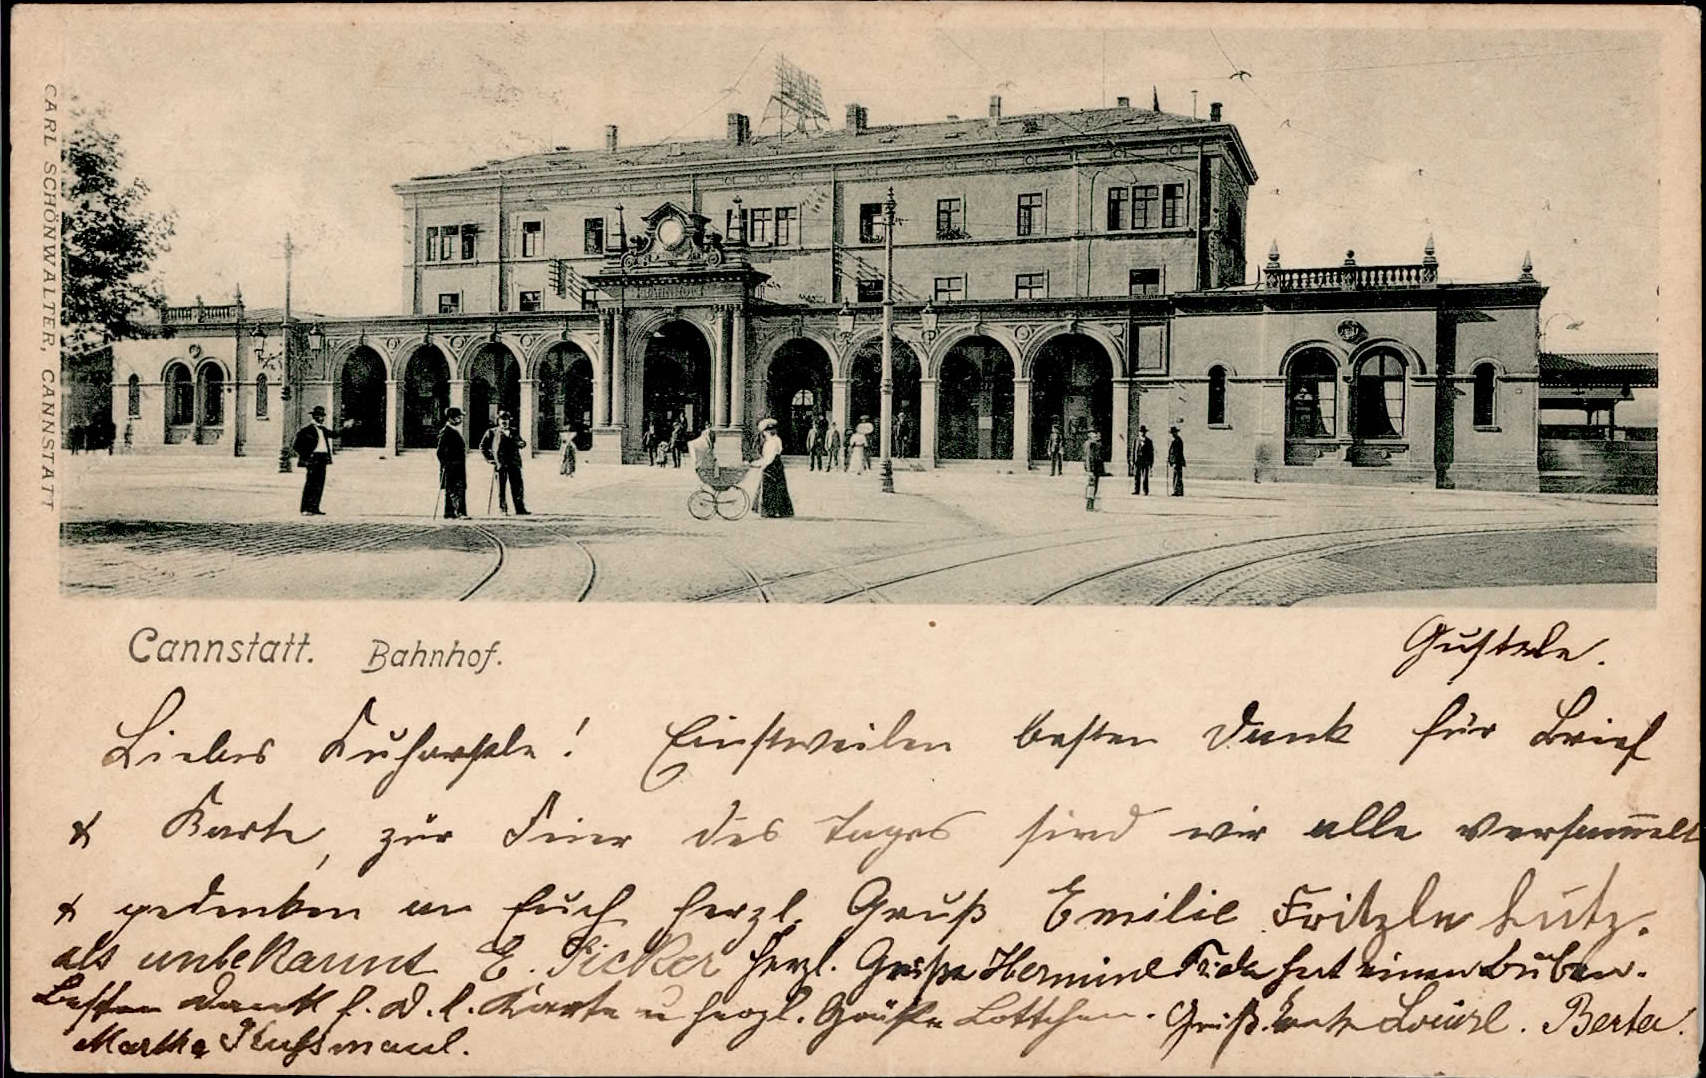 BAHNHOF
CARL SCHÖNWALTER, CANNSTATT
Cannstatt. Bahnhof.
Gustele.
Liebes! Einstweilen besten Dank für Brief
& Karte, zur Feier des Tages sind wir alle versam̅elt
& gedenken an Euch herzl. Gruß Emilie Fritzle Lutz.
als unbekannt E. Sicker herzl. Grüße Hermine hat einen Buben.
Besten Dank f. d. l. Karte u herzl. Grüße Lottchen. Gruß. Berta.
Martha Kußmaul.